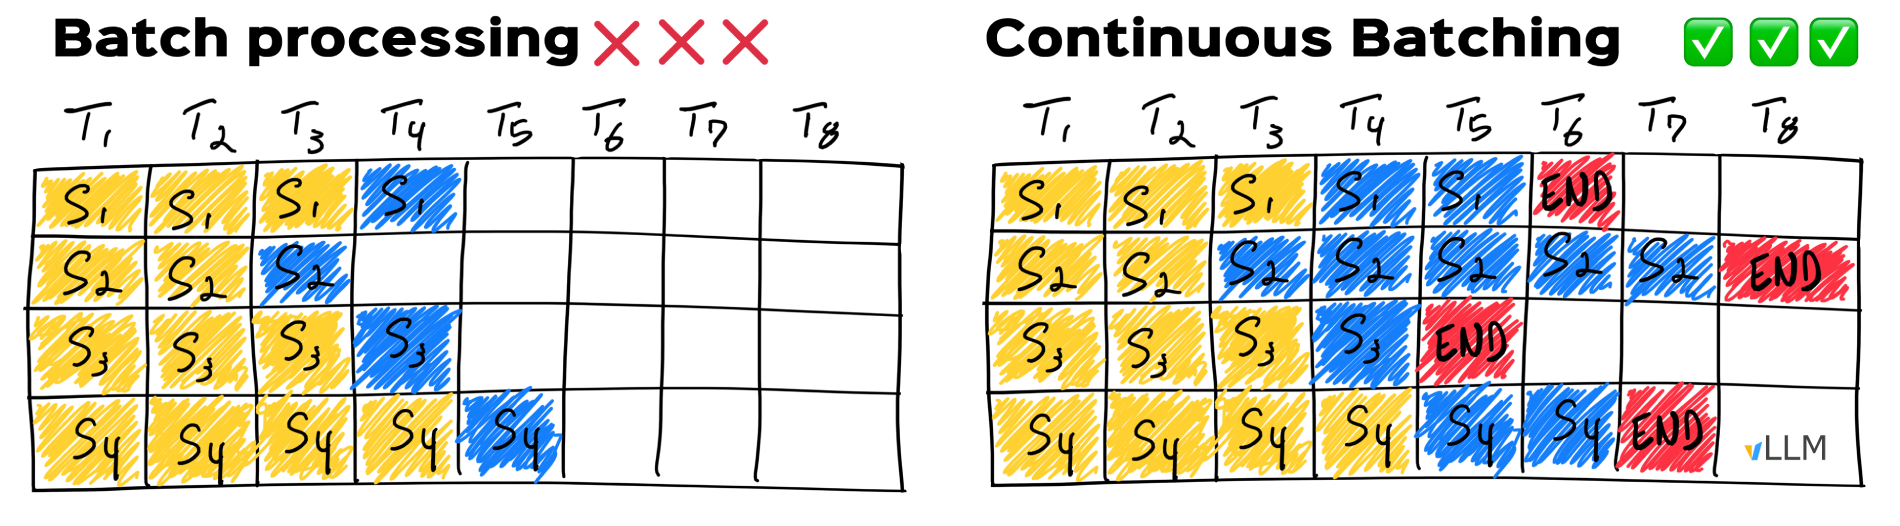 Batch processing ❌ ❌ ❌
T1 T2 T3 T4 T5 T6 T7 T8
S1 S1 S1 S1
S2 S2 S2
S3 S3 S3 S3
S4 S4 S4 S4 S4
Continuous Batching ✅ ✅ ✅
T1 T2 T3 T4 T5 T6 T7 T8
S1 S1 S1 S1 S1 END
S2 S2 S2 S2 S2 S2 S2 END
S3 S3 S3 S3 END
S4 S4 S4 S4 S4 S4 END
vLLM